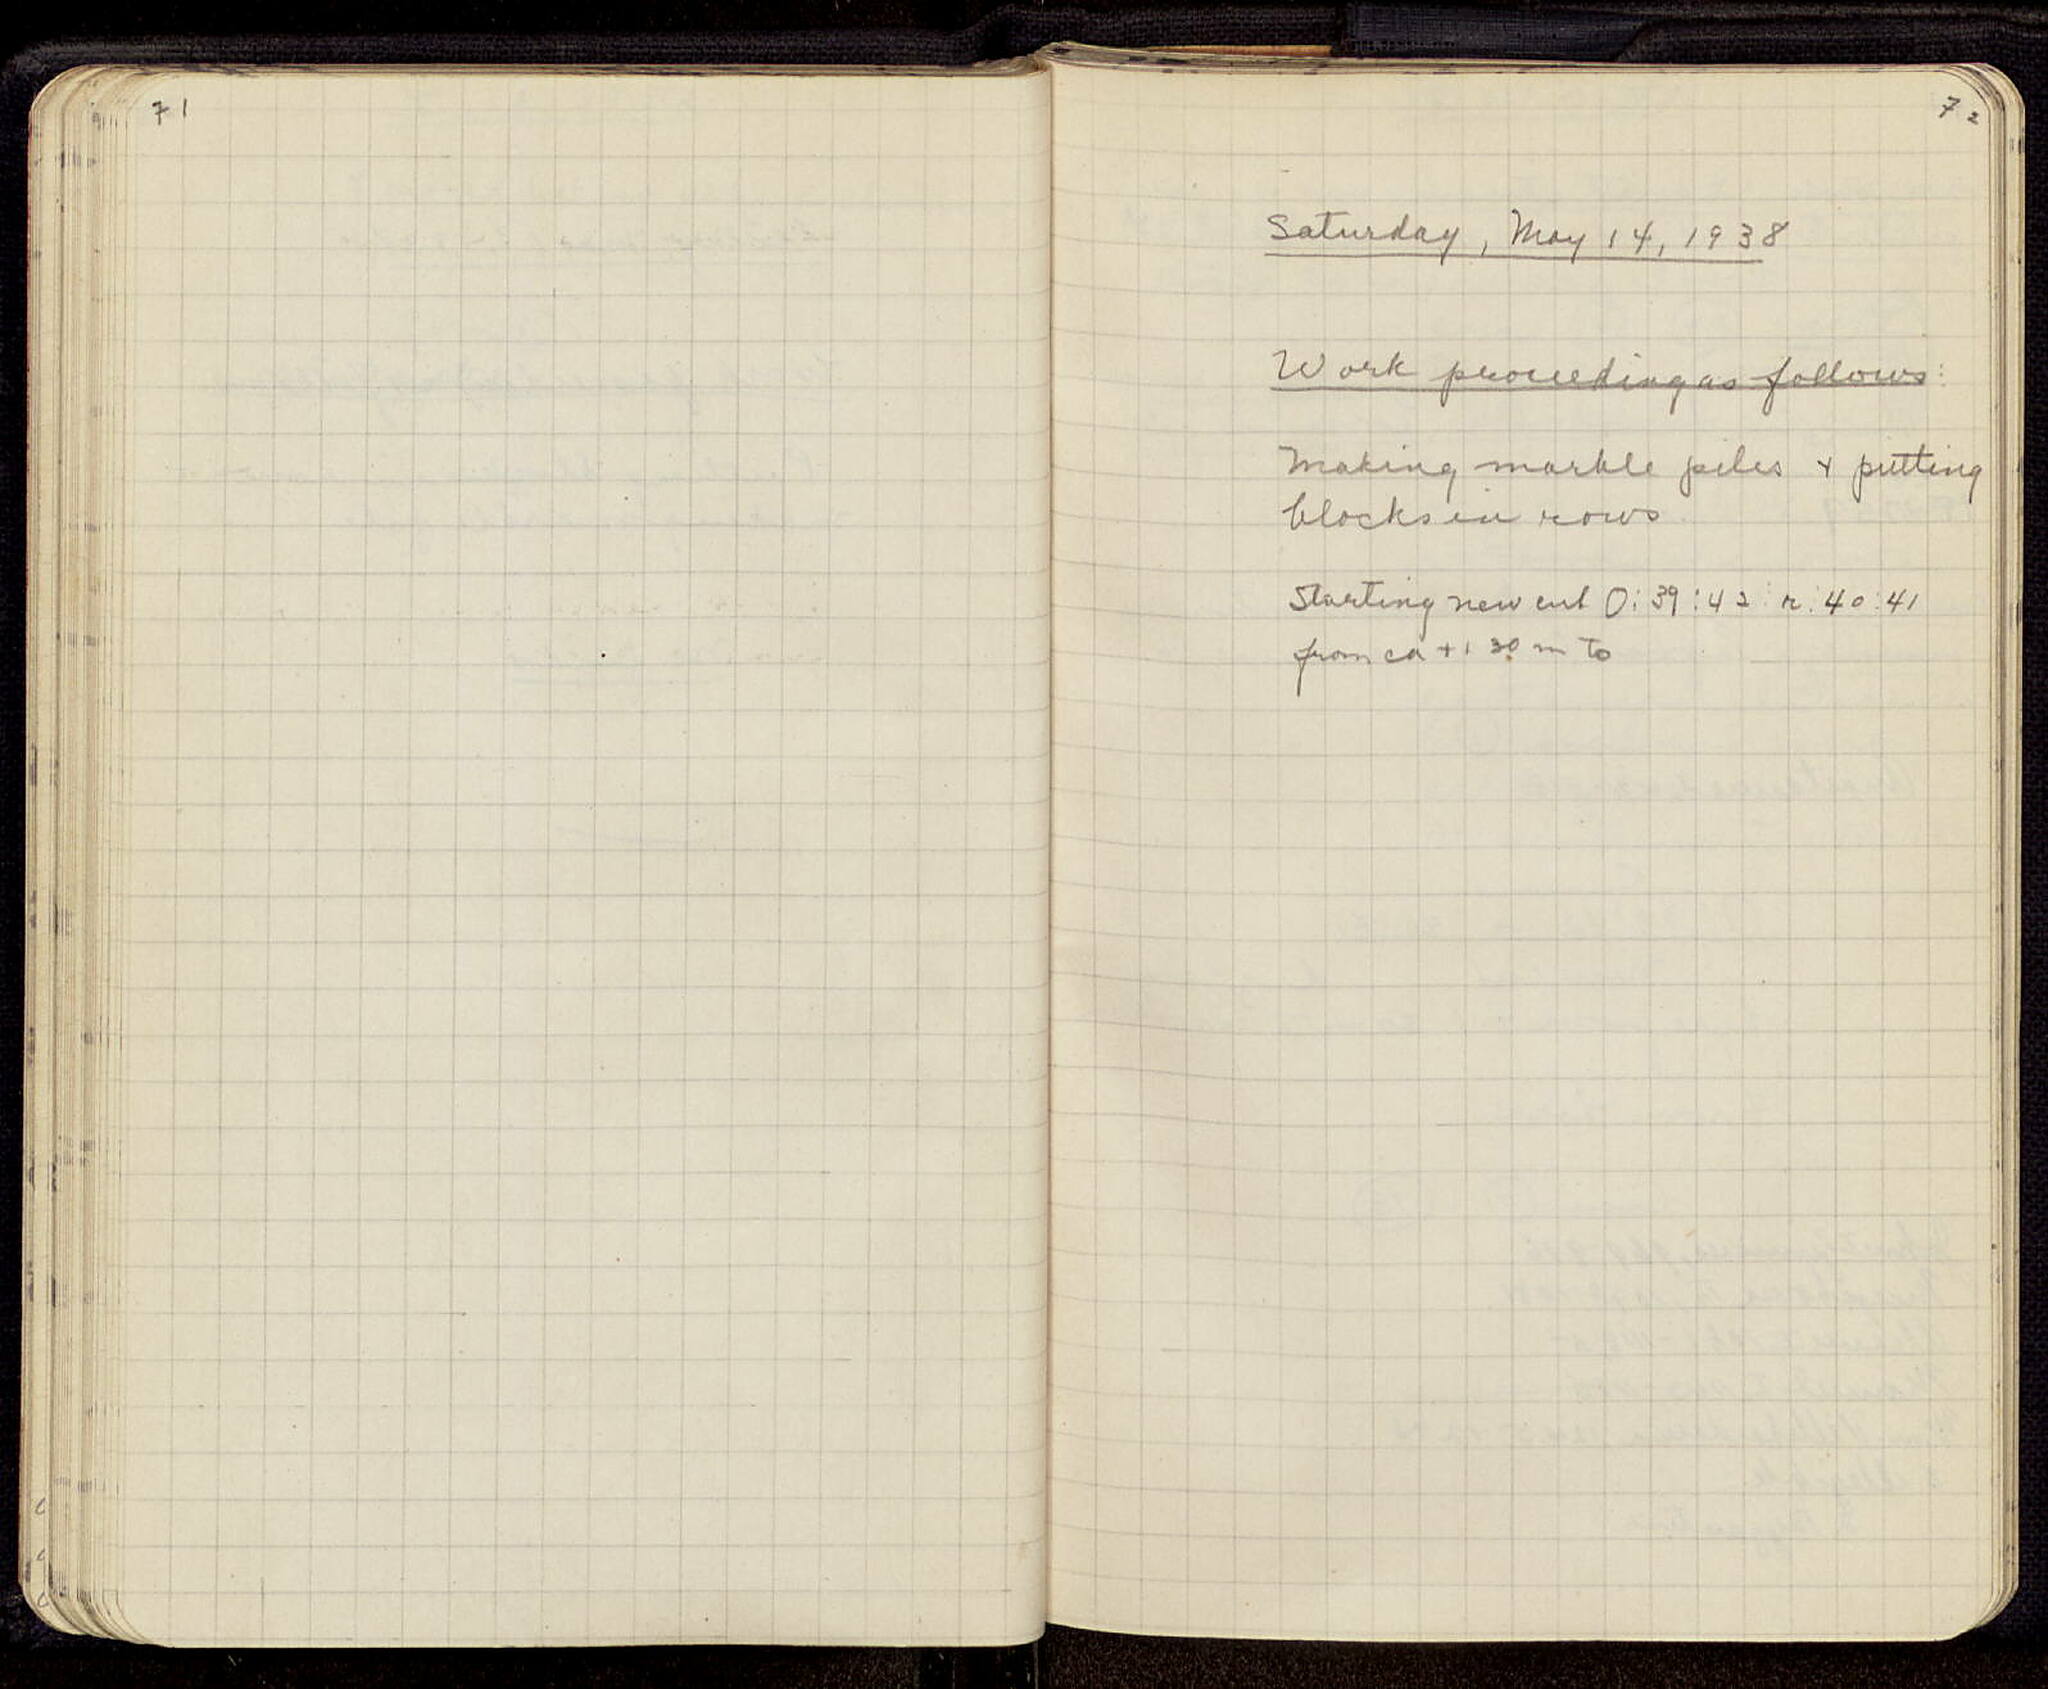 71
72
Saturday, May 14, 1938
Work proceeding as follows:
Making marble piles + putting
blocks in rows.
Starting new cut O:39:42: r:40:41
from ca +1 30 m to